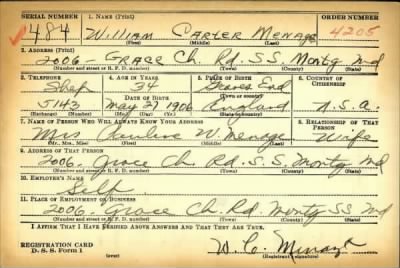 SERIAL NUMBER 1. NAME (Print) ORDER NUMBER
484 William Carter Menage 4205
(First) (Middle) (Last)
2. ADDRESS (Print)
2006 - Grace Ch. Rd. S.S. Montg Md
(Number and street or R. F. D. number) (Town) (County) (State)
3. TELEPHONE 4. AGE IN YEARS 5. PLACE OF BIRTH 6. COUNTRY OF CITIZENSHIP
Shep 34 Graves End
DATE OF BIRTH (Town or county)
5143 May 27 1906 England U.S.A.
(Exchange) (Number) (Mo.) (Day) (Yr.) (State or country)
7. NAME OF PERSON WHO WILL ALWAYS KNOW YOUR ADDRESS 8. RELATIONSHIP OF THAT PERSON
Mrs W. Menage Wife
(Mr., Mrs., Miss) (First) (Middle) (Last)
9. ADDRESS OF THAT PERSON
2006. Grace Ch. Rd. S.S. Montg Md
(Number and street or R. F. D. number) (Town) (County) (State)
10. EMPLOYER'S NAME
Self
11. PLACE OF EMPLOYMENT OR BUSINESS
2006. Grace Ch. Rd Montg SS Md
(Number and street or R. F. D. number) (Town) (County) (State)
I AFFIRM THAT I HAVE VERIFIED ABOVE ANSWERS AND THAT THEY ARE TRUE.
REGISTRATION CARD
D. S. S. Form 1 W. C. Menage
(over) (Registrant's signature)